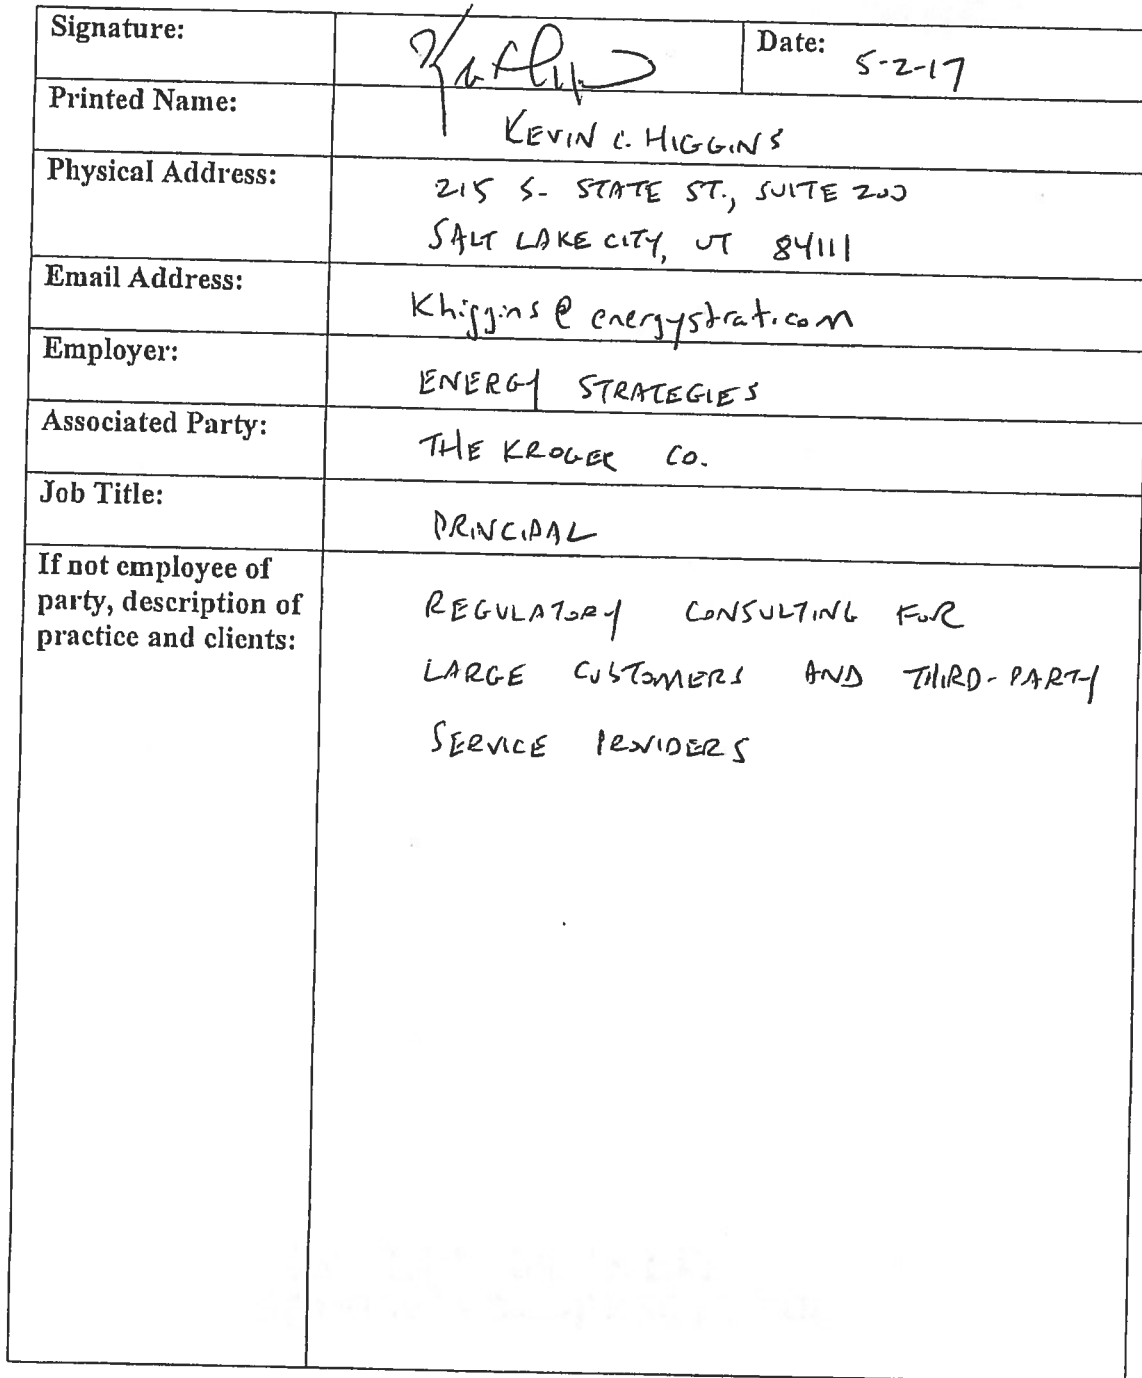 Signature:
Date: 5-2-17
Printed Name:
KEVIN C. HIGGINS
Physical Address:
215 S. STATE ST., SUITE 200
SALT LAKE CITY, UT 84111
Email Address:
Khiggins@energystrat.com
Employer:
ENERGY STRATEGIES
Associated Party:
THE KROGER CO.
Job Title:
PRINCIPAL
If not employee of
party, description of
practice and clients:
REGULATORY CONSULTING FOR
LARGE CUSTOMERS AND THIRD-PARTY
SERVICE PROVIDERS